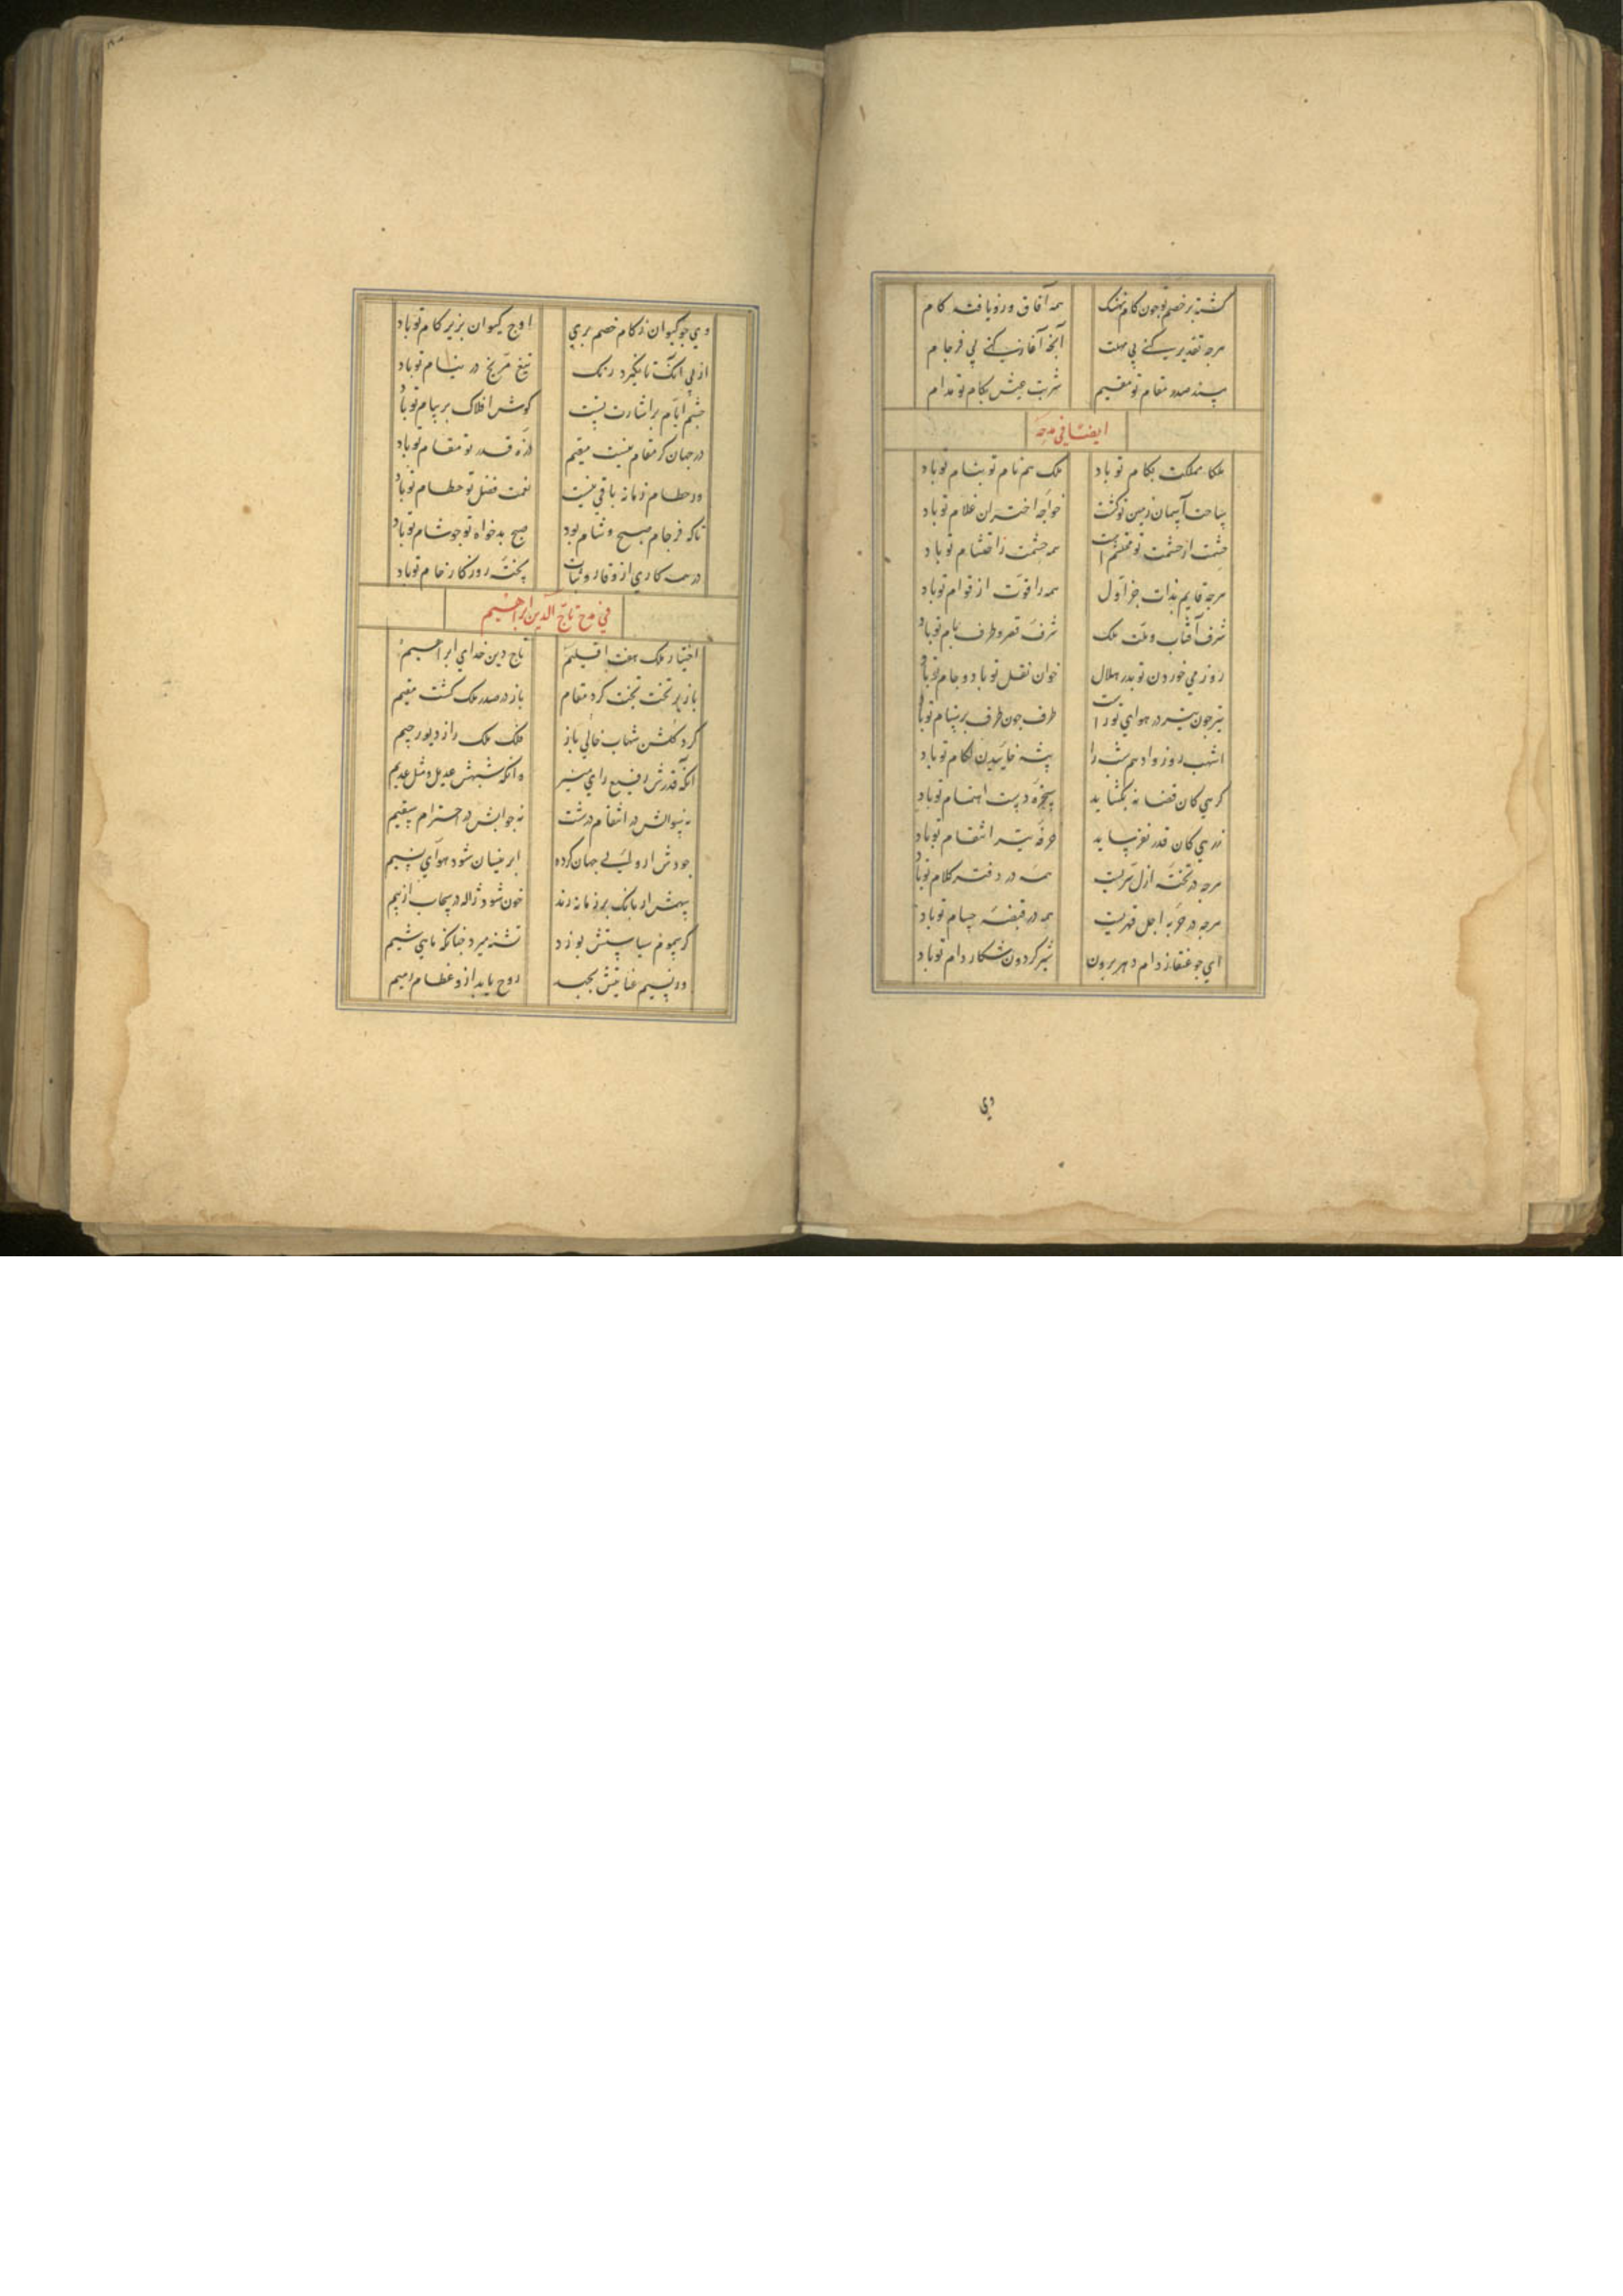 کشته بر خصم تو جون کام نهنک همه آفاق وز تو یافته کام
هرجه تقدیر کنی بی مهلت آنجه آغاز کنی بی فرجام
مسند صدر مقام تو مقیم شربت عیش بکام تو مدام
ایضا فی مدحه
ملکا مملکت بکام تو باد ملک هم نام تو بنام تو باد
ساحت آسمان زمین تو کشت خواجه اختران غلام تو باد
حشمت از حشمت تو محتشم است همه حشمت ز احتشام تو باد
هرجه قایم بذات جز اول همه را قوت از قوام تو باد
شرف آفتاب وملت ملک شرف قصر و طرف بام تو باد
روز می خوردن تو بدر و هلال خوان نقل تو باد و جام تو باد
تیر جون تیر در هوای تو راست طرف جون طرف بر ستام تو باد
اشهب روز و ادهم شب را پشه خاییدن لکام تو باد
کرهی کان قضا نه بکشاید سخره دست اهتمام تو باد
زرهی کان قدر نفرساید خرقه تیر انتقام تو باد
هرجه در تخته ازل سریست همه در دفتر کلام تو باد
هرجه در حربه اجل قهریست همه در قبضه حسام تو باد
ای جو عنقا ز دام دهر برون شیر کردون شکار دام تو باد
وی
وی جو کیوان ز کام خصم بری اوج کیوان بزیر کام تو باد
از پی انک تا نکیرد زنک تیغ مریخ در نیام تو باد
جشم ایام بر اشارت تست کوش افلاک بر پیام تو باد
در جهان کر مقام نیست مقیم ذره قدر تو مقام تو باد
ور حطام زمانه باقی نیست نعمت فضل تو حطام تو باد
تا که فرجام صبح و شام بود صبح بدخواه تو جو شام تو باد
در همه کاری از وقار و ثبات پخته روزکار خام تو باد
فی مدح تاج الدین ابراهیم
اختیار ملک هفت اقلیم تاج دین خدای ابراهیم
باز بر تخت بخت کرد مقام باز در صدر ملک کشت مقیم
کرد کلشن شهاب خالی باز فلک ملک را ز دیو رجیم
انکه قدرش رفیع رای منیر وانکه شبهش عدیل و مثل عدیم
نه سوالش در انتقام درشت نه جوابش در احترام سقیم
جودش ار ولیی جهان کرده ابر نیسان شود هوای نسیم
بیمش ار بانک بر زمانه زند خون شود ژاله در سحاب از بیم
کر سموم سیاستش بوزد تشنه میرد جنانکه ماهی شیم
ور نسیم عنایتش بجهد روح یابد ازو عظام رمیم